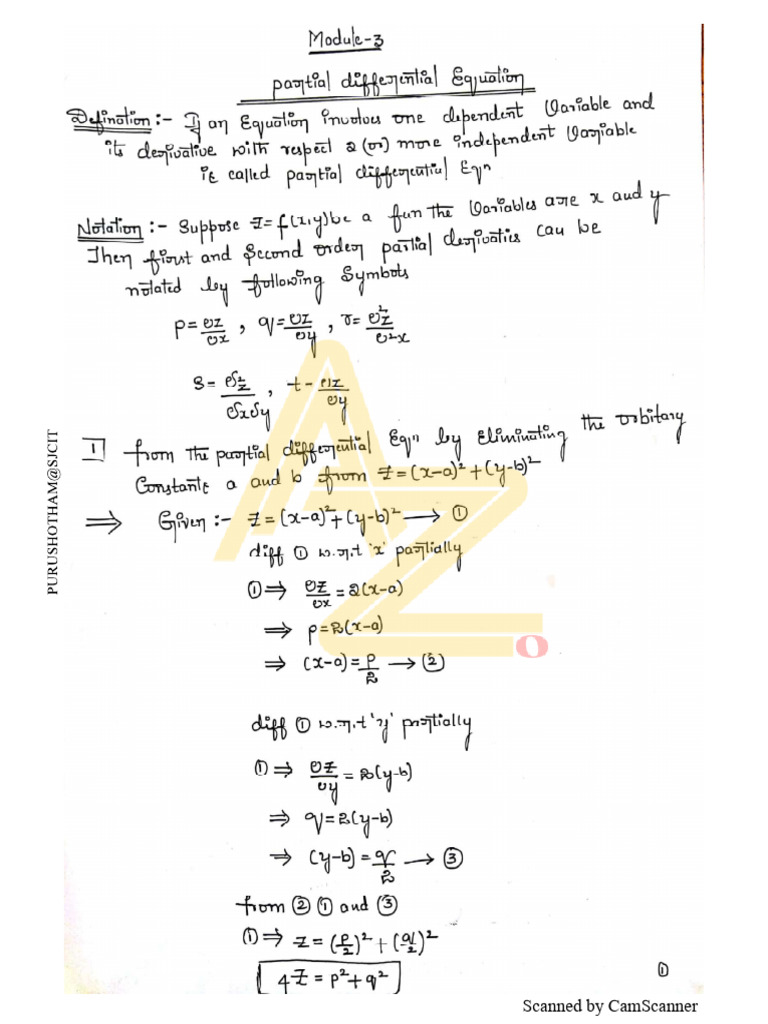 Module-3
partial differential Equation
Defination :- If an Equation involves one dependent Variable and
its derivative with respect 2 (or) more independent Variable
it called partial differential Eqn
Notation :- Suppose Z=f(x,y) be a fun the Variables are x and y
Then first and second order partial derivaties can be
notated by following Symbols
p=∂z/∂x , q=∂z/∂y , r=∂²z/∂²x
s=∂²z/∂x∂y , t-∂z/∂y
1 from the partial differential Eqn by Eliminating the orbitary
Constants a and b from Z=(x-a)²+(y-b)²
⇒ Given :- Z=(x-a)²+(y-b)² → ①
diff ① w.r.t 'x' partially
①⇒ ∂z/∂x=2(x-a)
⇒ p=2(x-a)
⇒ (x-a)=p/2 → ②
diff ① w.r.t 'y' partially
①⇒ ∂z/∂y=2(y-b)
⇒ q=2(y-b)
⇒ (y-b)=q/2 → ③
from ② ① and ③
①⇒ z=(p/2)²+(q/2)²
4Z=p²+q²
①
PURUSHOTHAM@SJCIT
AZ
O
Scanned by CamScanner